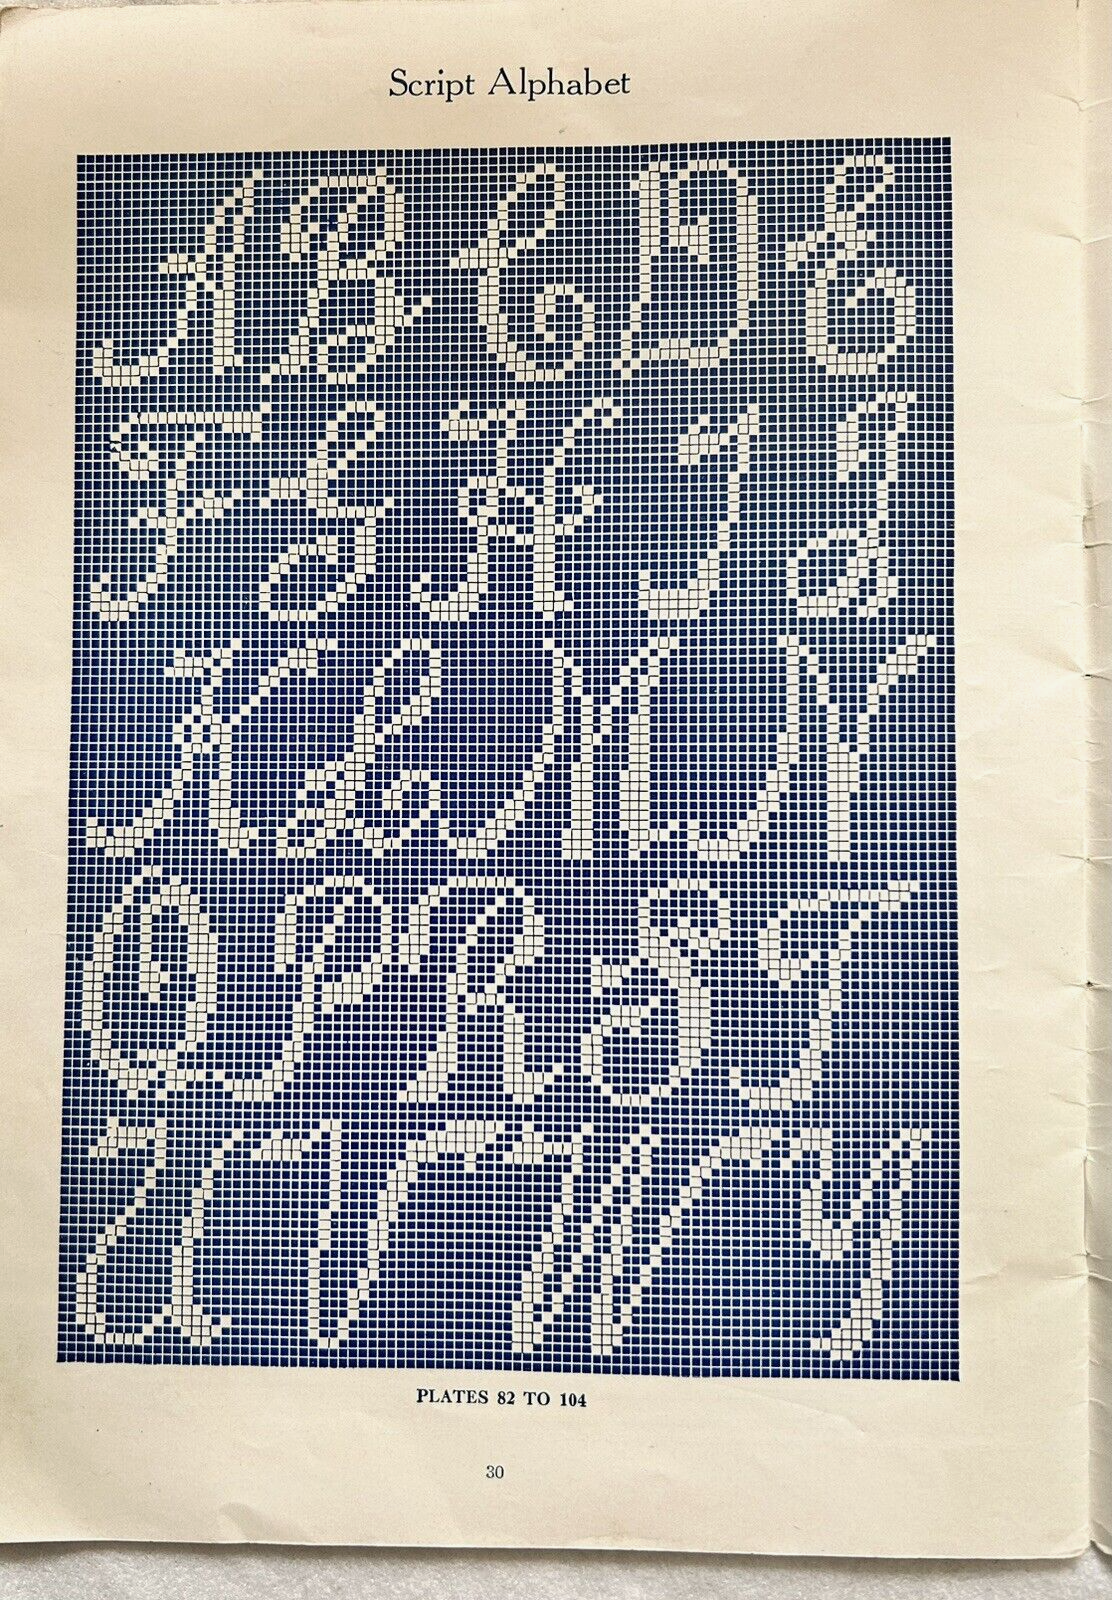 Script Alphabet
A B C D E
F G H I J
K L M N
O P R S T
U V W Y
PLATES 82 TO 104
30